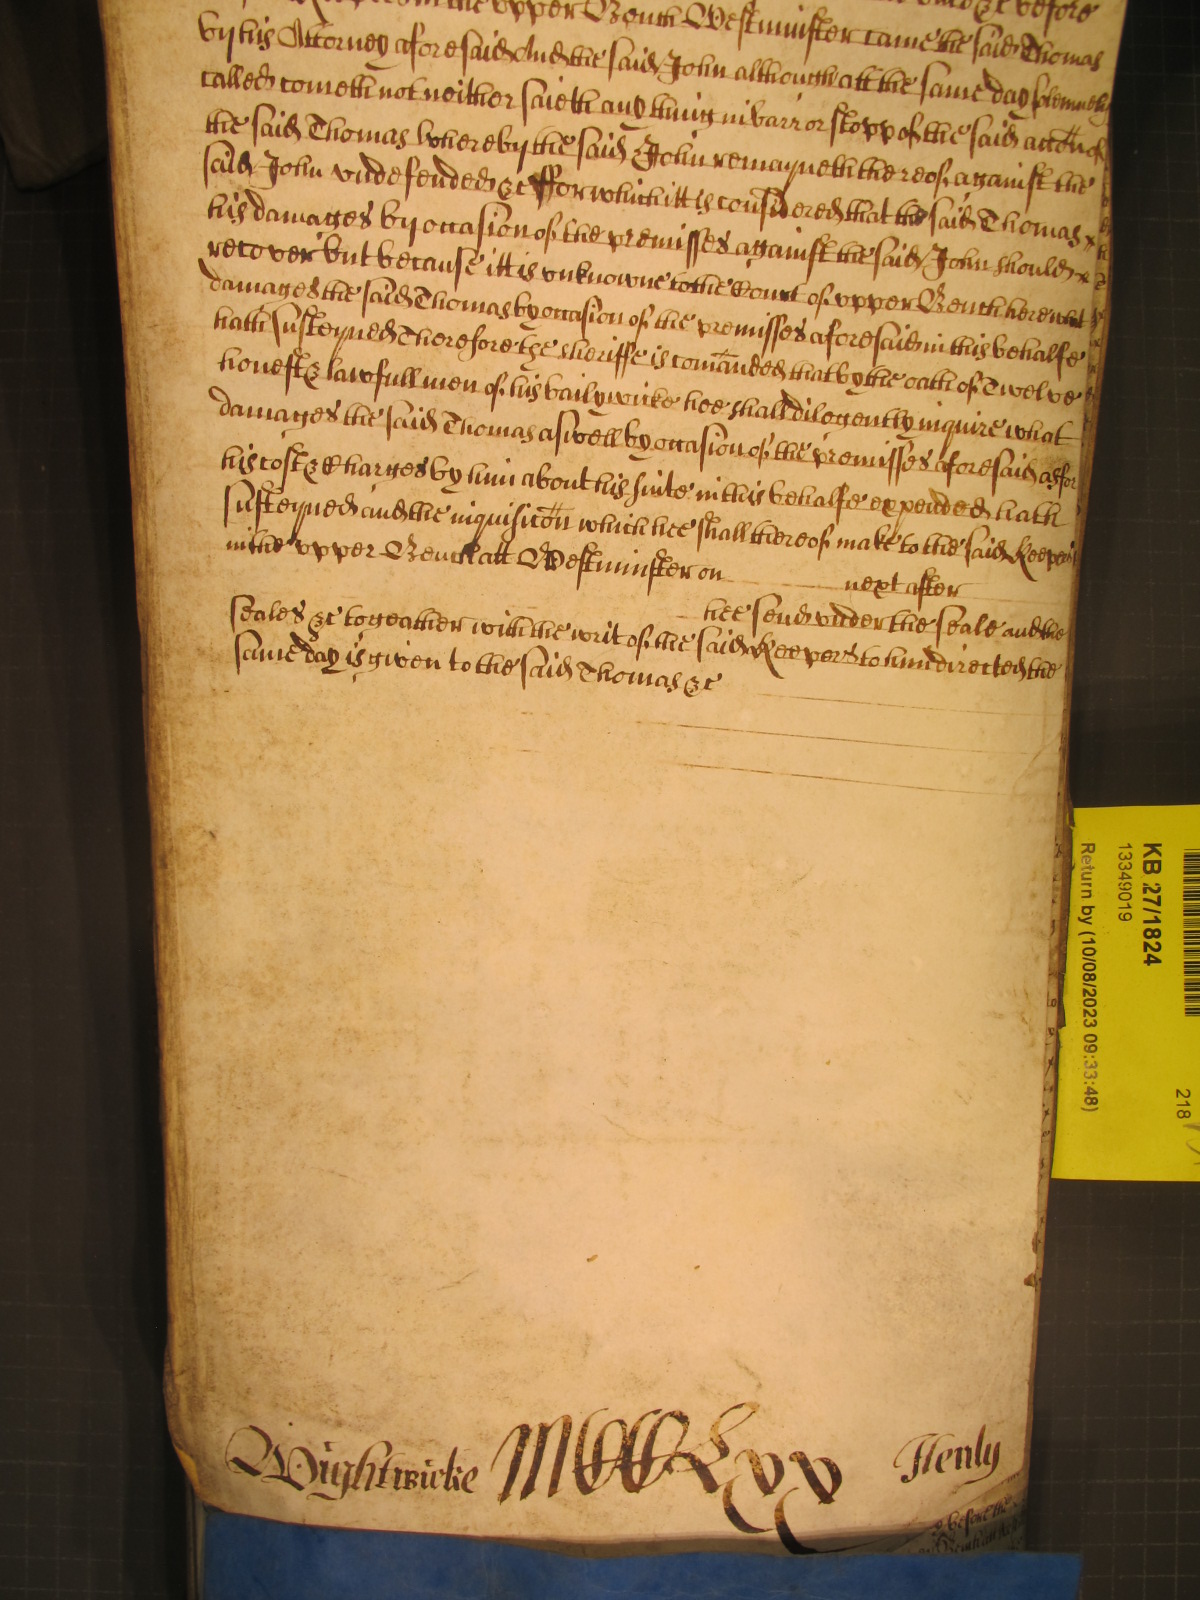 the upper Bench Westminster came the said Thomas
by his Attorney aforesaid And the said John although att the same day solemnely
called cometh not neither saieth any thing in barr or stopp of the said accon of
the said Thomas whereby the said John remayneth thereof against the
said John undefended &c ffor which itt is considered that the said Thomas
his damages by occasion of the premisses against the said John should
recover but because itt is unknowne to the Court of upper Bench here what
damages the said Thomas by occasion of the premisses aforesaid in this behalfe
hath susteyned Therefore the sheriffe is comanded that by the oath of Twelve
honest & lawfull men of his bailywicke hee shall diligently inquire what
damages the said Thomas aswell by occasion of the premisses aforesaid as for
his costs & charges by him about his suite in this behalfe expended hath
susteyned and the inquisicon which hee shall thereof make to the said Keepers
in the upper Bench att Westminster on next after
hee send under the seale and the
seales &c togeather with the writ of the said Keepers to him directed the
same day is given to the said Thomas &c
Wightwicke MCCCCLxxv Henly
before the
KB 27/1824
13349019
Return by (10/08/2023 09:33:48)
218